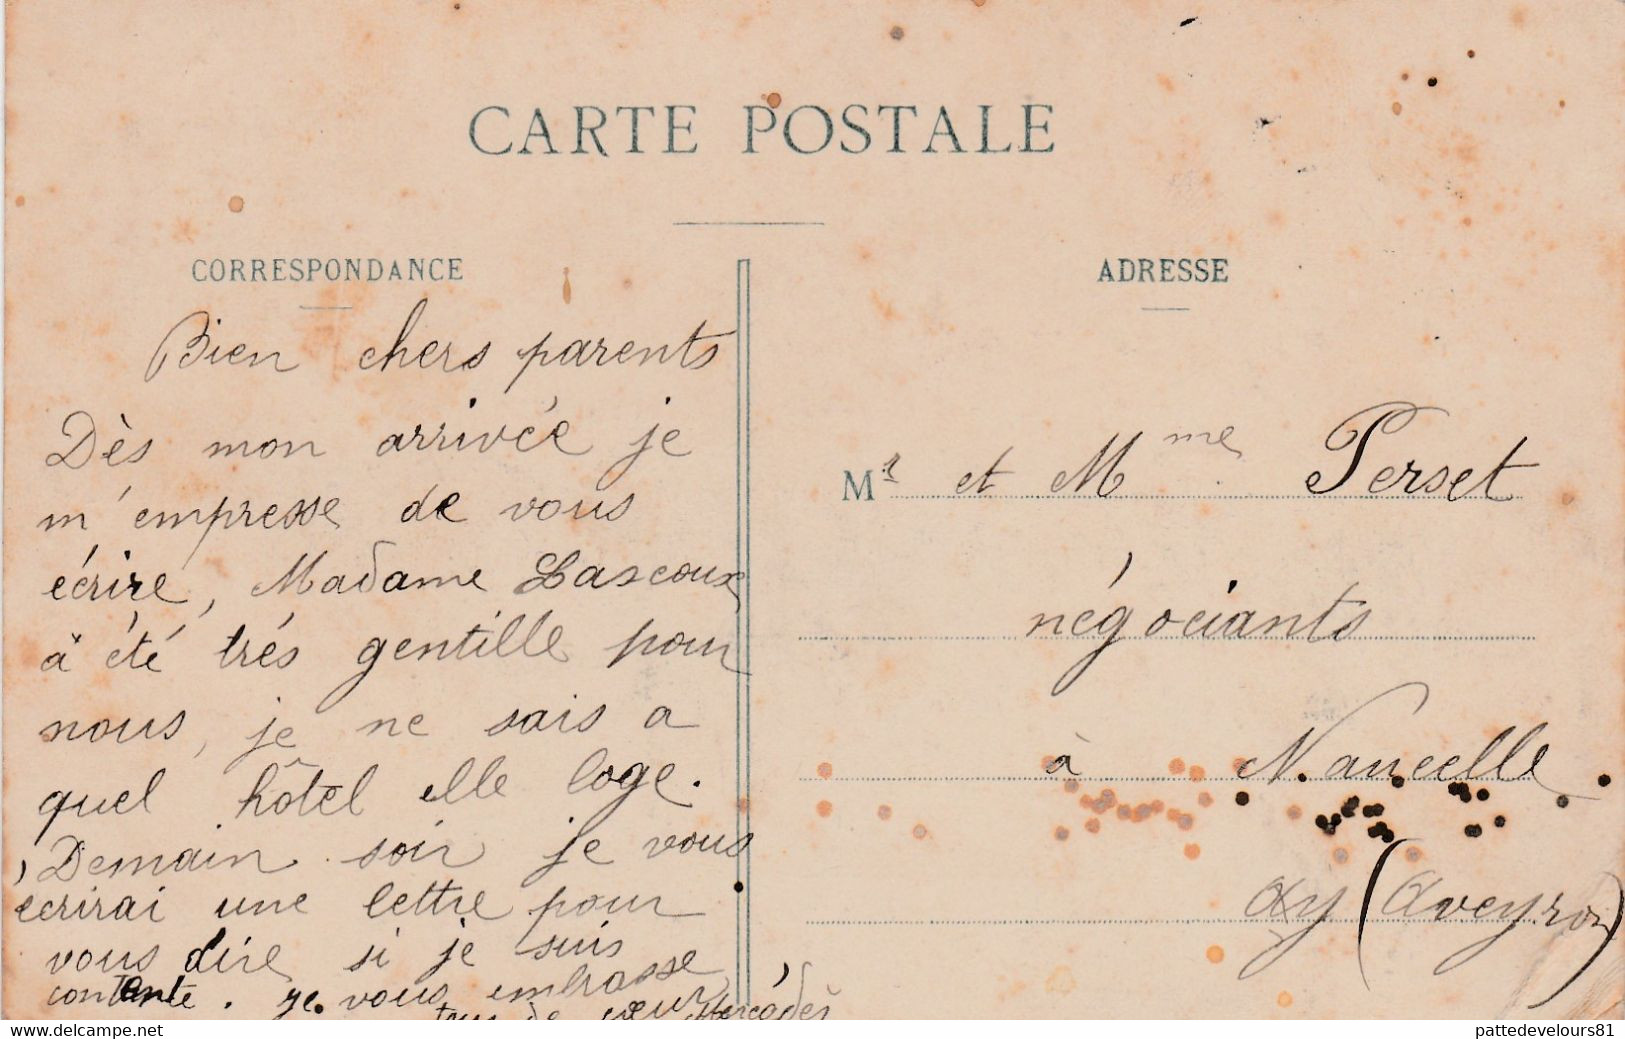 CARTE POSTALE
CORRESPONDANCE
Bien chers parents
Dès mon arrivée je
m'empresse de vous
écrire, Madame Lascoux
à été trés gentille pour
nous, je ne sais a
quel hôtel elle loge.
Demain soir je vous
écrirai une lettre pour
vous dire si je suis
contente. je vous embrasse
tous de cœur Mercédès
ADRESSE
Mr et Mme Perset
négociants
à Naucelle
(Aveyron)
delcampe.net
pattedevelours81